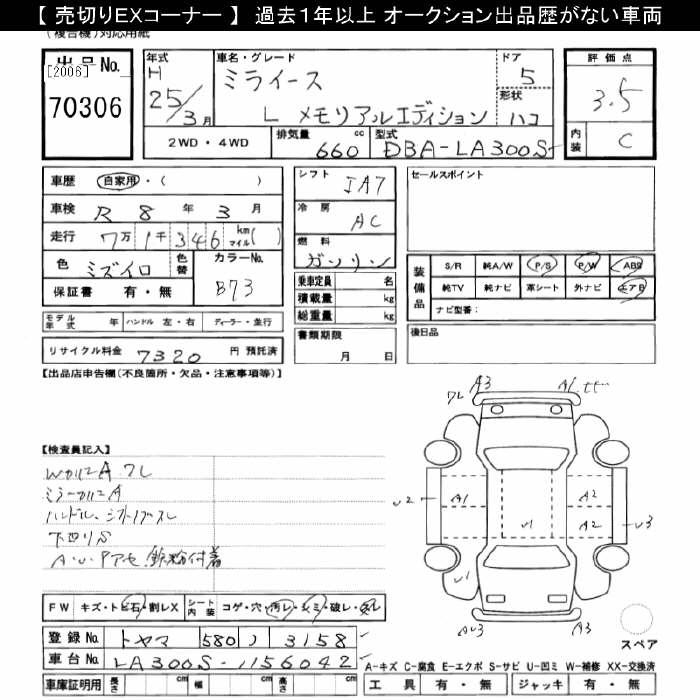 【 売切りEXコーナー 】 過去1年以上 オークション出品歴がない車両
(複合機)対応用紙
出品No.
[2006]
70306
年式 H 25/3月
車名・グレード ミライース
L メモリアルエディション
ドア 5
形状 ハコ
2WD・4WD
排気量 660 cc
型式 DBA-LA300S
評価点 3.5
内装 C
車歴 自家用・( )
車検 R 8 年 3 月
走行 7万 1千 346 km マイル( )
色 ミズイロ 色替
カラーNo. B73
保証書 有・無
モデル年式 年 ハンドル 左・右 ディーラー・並行
リサイクル料金 7320 円 預託済
シフト IA7
冷房 AC
燃料 ガソリン
乗車定員 名
積載量 kg
総重量 kg
書類期限
月 日
セールスポイント
装備品
S/R 純A/W P/S P/W ABS
純TV 純ナビ 革シート 外ナビ エアB
ナビ型番:
後日品
【出品店申告欄(不良箇所・欠品・注意事項等)】
【検査員記入】
Wカリニ A ワレ
ミラーカリニ A
ハンドル、シフトノブスレ
下回りS
A・U・Pアセ 鉄粉付着
ワレ A3 A1
U2 A1 A2
U1 A2 U3
U1
AU3 A3
スペア
FW キズ・トビ石・割レX シート内装 コゲ・穴・汚レ・シミ・破レ・スレ
登録No. トヤマ 580 3158
車台No. LA300S-1156042
車庫証明用 長さ cm 幅 cm 高さ cm
A-キズ C-腐食 E-エクボ S-サビ U-凹ミ W-補修 XX-交換済
工具 有・無 ジャッキ 有・無